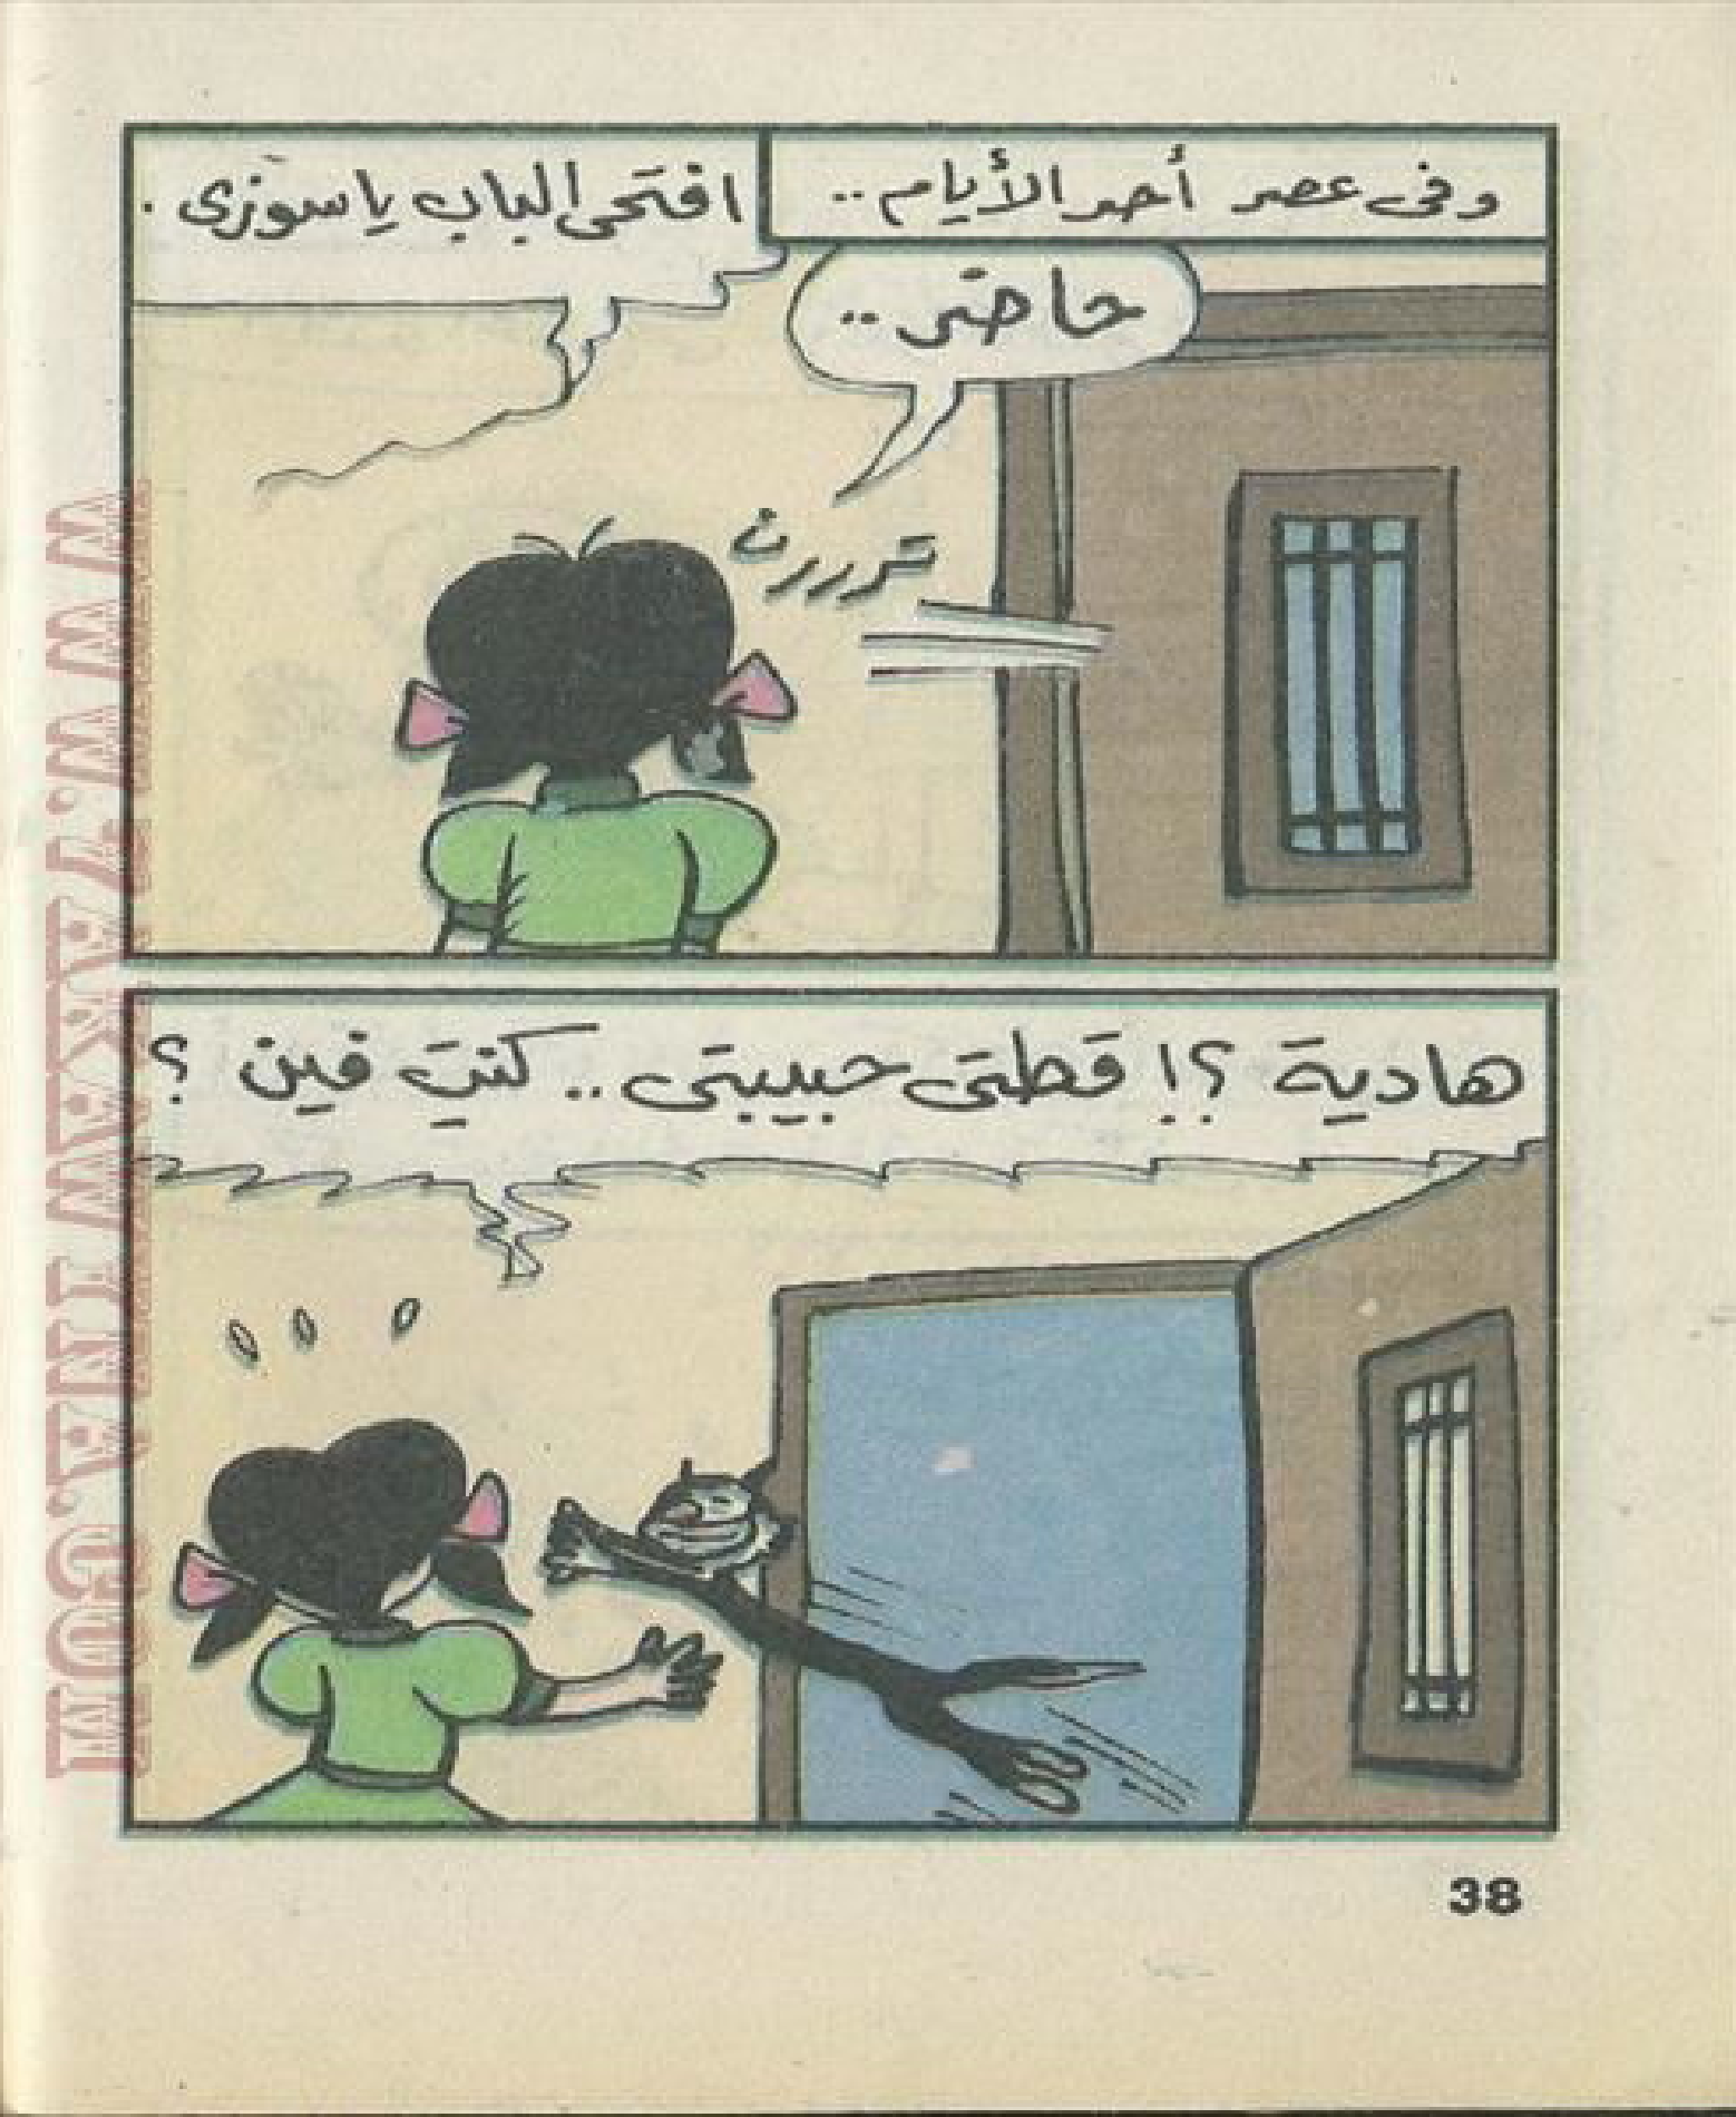 وفى عصر أحد الأيام ..
افتحى الباب ياسوزى .
حاضر ..
تررررن
هادية ؟! قطتى حبيبتى .. كنتِ فين ؟
38